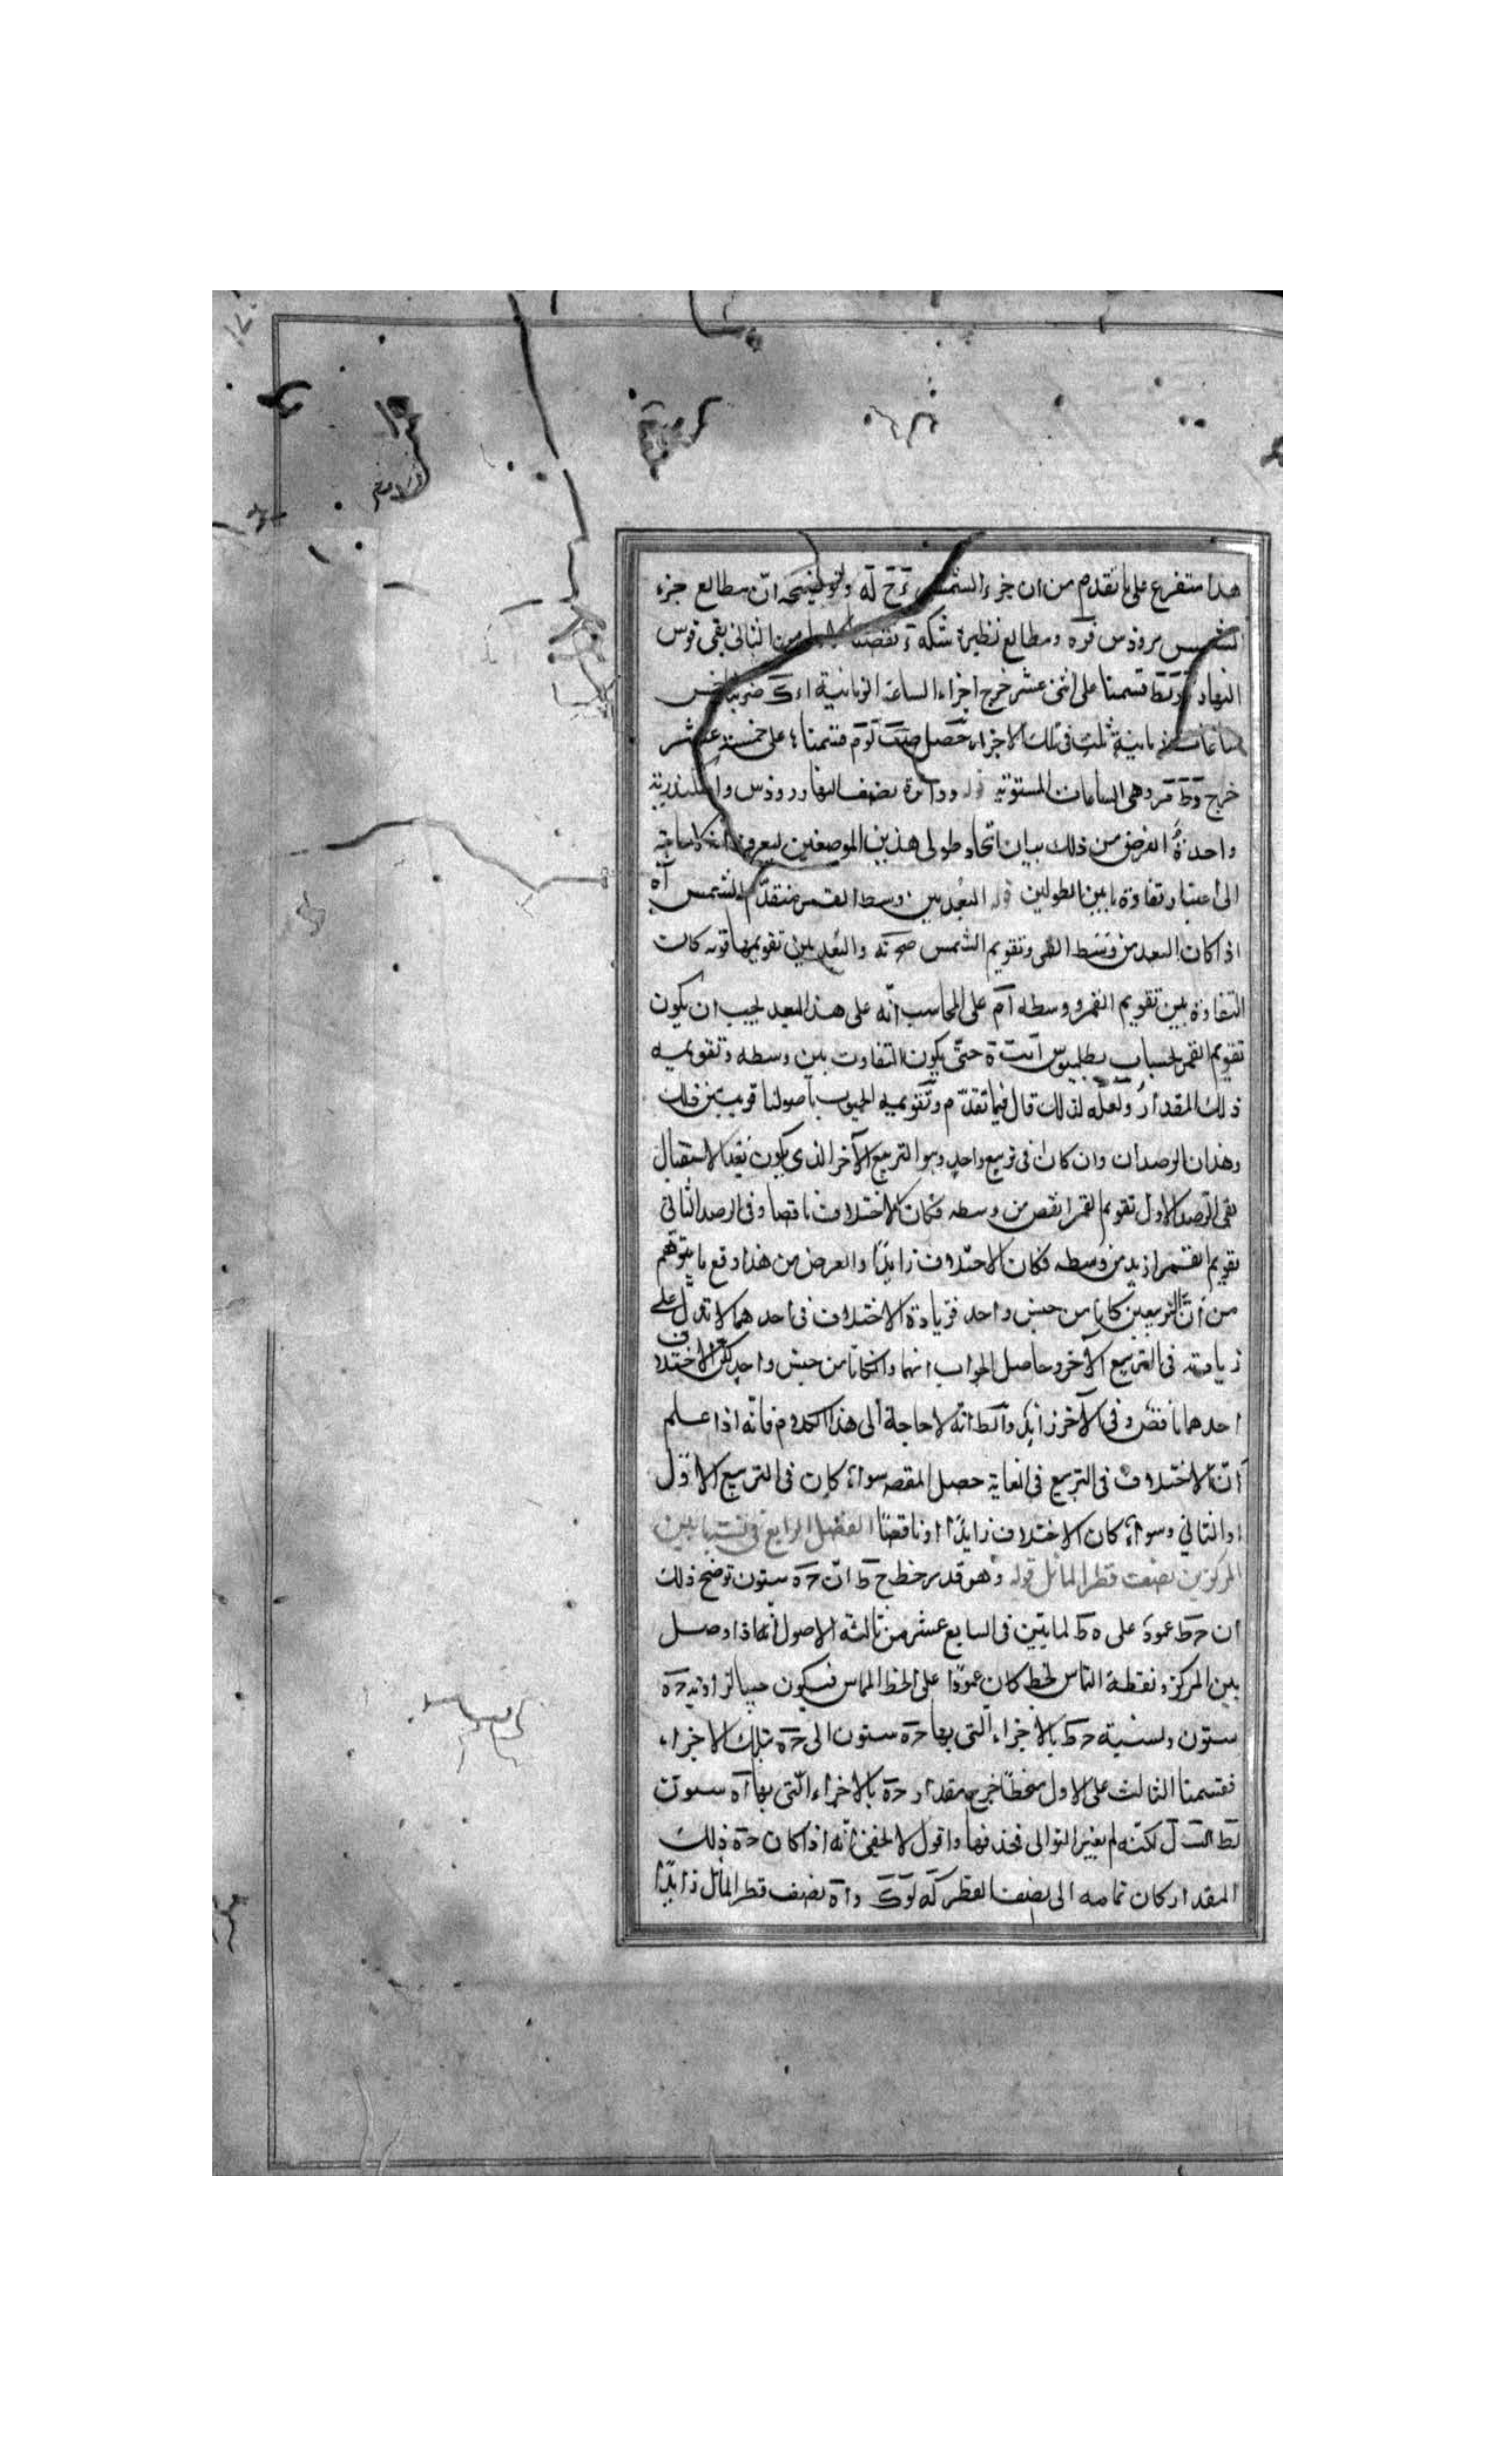 هذا متفرع على ما تقدم من ان جزء الشمس ءَ حَ لَه وتوضيحه انّ مطالع جزء
الشمس بروذس فره ومطالع نظيره شكه ءَ نقصنا الاول من الثانى بقى قوس
النهار قسمنا على اثنى عشر خرج اجزاء الساعة الزمانية ضربنا خمس
ساعات زمانية ثلث فى تلك الاجزاء حصل قسمنا على خمسة عشر
خرج وهى الساعات المستوية قوله ودائرة نصف النهار روذس واسكندرية
واحدة الغرض من ذلك بيان اتّحاد طولى هذين الموضعين ليعرف انه لا حاجة
الى اعتبار تفاوة ما بين الطولين قوله البُعد بين وسط القمر متقدّم الشمس آه
اذا كان البعد من وسط القمر وتقويم الشمس والبُعد بين تقويمها كانت
التفاوة بين تقويم القمر ووسطه آم على المحاسب انّه على هذا البعد يجب ان يكون
تقويم القمر بحساب بطلميوس حتّى يكون التفاوت بين وسطه وتقويمه
ذلك المقدار ولعلّه لذلك قال فيما تقدّم وتقويمه المحسوب باصولنا قريب من ذلك
وهذان الرصدان وان كان فى تربيع واحد وهو التربيع الآخر الذى يكون بعد الاستقبال
بقى الرصد الاول تقويم القمر انقص من وسطه فكان الاختلاف ناقصا وفى الرصد الثانى
تقويم القمر ازيد من وسطه فكان الاختلاف زايدًا والغرض من هذا دفع ما يتوهّم
من انّ التربيعين كانا من جنس واحد فزيادة الاختلاف فى احدهما لا تدلّ على
زيادته فى التربيع الآخر وحاصل الجواب انهما وان كانا من جنس واحد لكن الاختلاف
احدهما ناقص وفى الآخر زايد وآلط انّه لا حاجة الى هذا الكلام فانّه اذا علم
انّ الاختلاف فى التربيع فى الغاية حصل المقصد سواء كان فى التربيع الاول
او الثانى وسواء كان الاختلاف زايدًا او ناقصًا الفصل الرابع فى نسبة ما بين
المركزين نصف قطر المائل قوله وهو قدر خط ح ط انّ ح ه ستون توضح ذلك
ان ح ط عمود على ه ط لما تبيّن فى السابع عشر من ثالثة الاصول انّه اذا وصل
بين المركز ونقطة التماس بخط كان عمودًا على الخط المماس فيكون جيبا لزاوية ح ه
ستون ونسبة ح ط بالاجزاء التى بها ح ه ستون الى ح ه بتلك الاجزاء
فقسمنا الثالث على الاول منحطّا خرج مقدار ح ه بالاجزاء التى بها آه ستون
لكنّه لم يغير التوالى فحذفها واقول لا يخفى انّه اذا كان ح ه ذلك
المقدار كان تمامه الى نصف القطر وآه نصف قطر المائل زايدًا